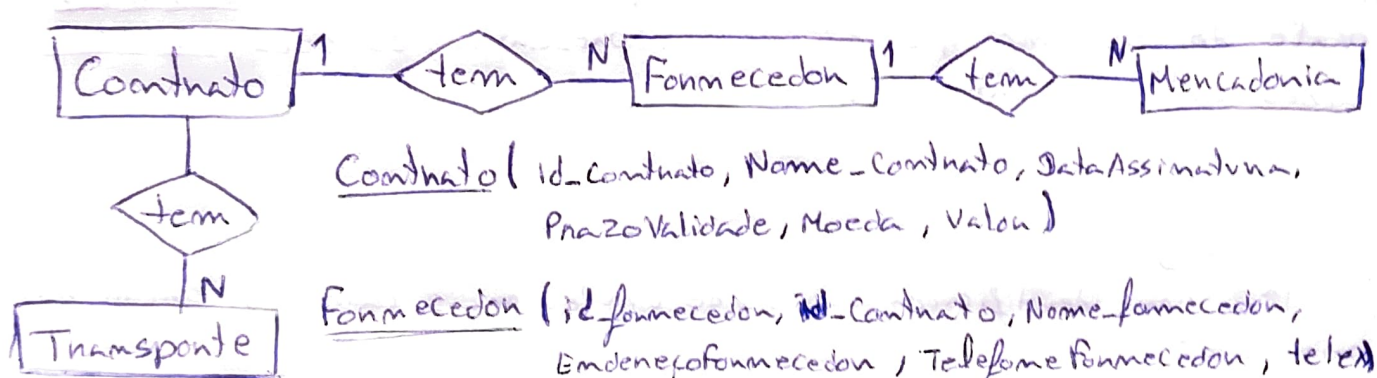 Contrato 1 tem N Fornecedor 1 tem N Mercadoria
Contrato ( id_contrato, Name_Contrato, DataAssinatura,
tem
PrazoValidade, Moeda, Valor )
N
Fornecedor ( id_fornecedor, id_Contrato, Nome_fornecedor,
Transporte
EndereçoFornecedor, TelefoneFornecedor, telex